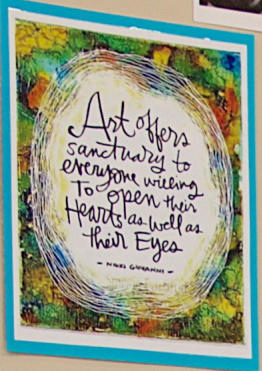 Art offers
sanctuary to
everyone willing
To open their
Hearts as well as
their Eyes
- NIKKI GIOVANNI -